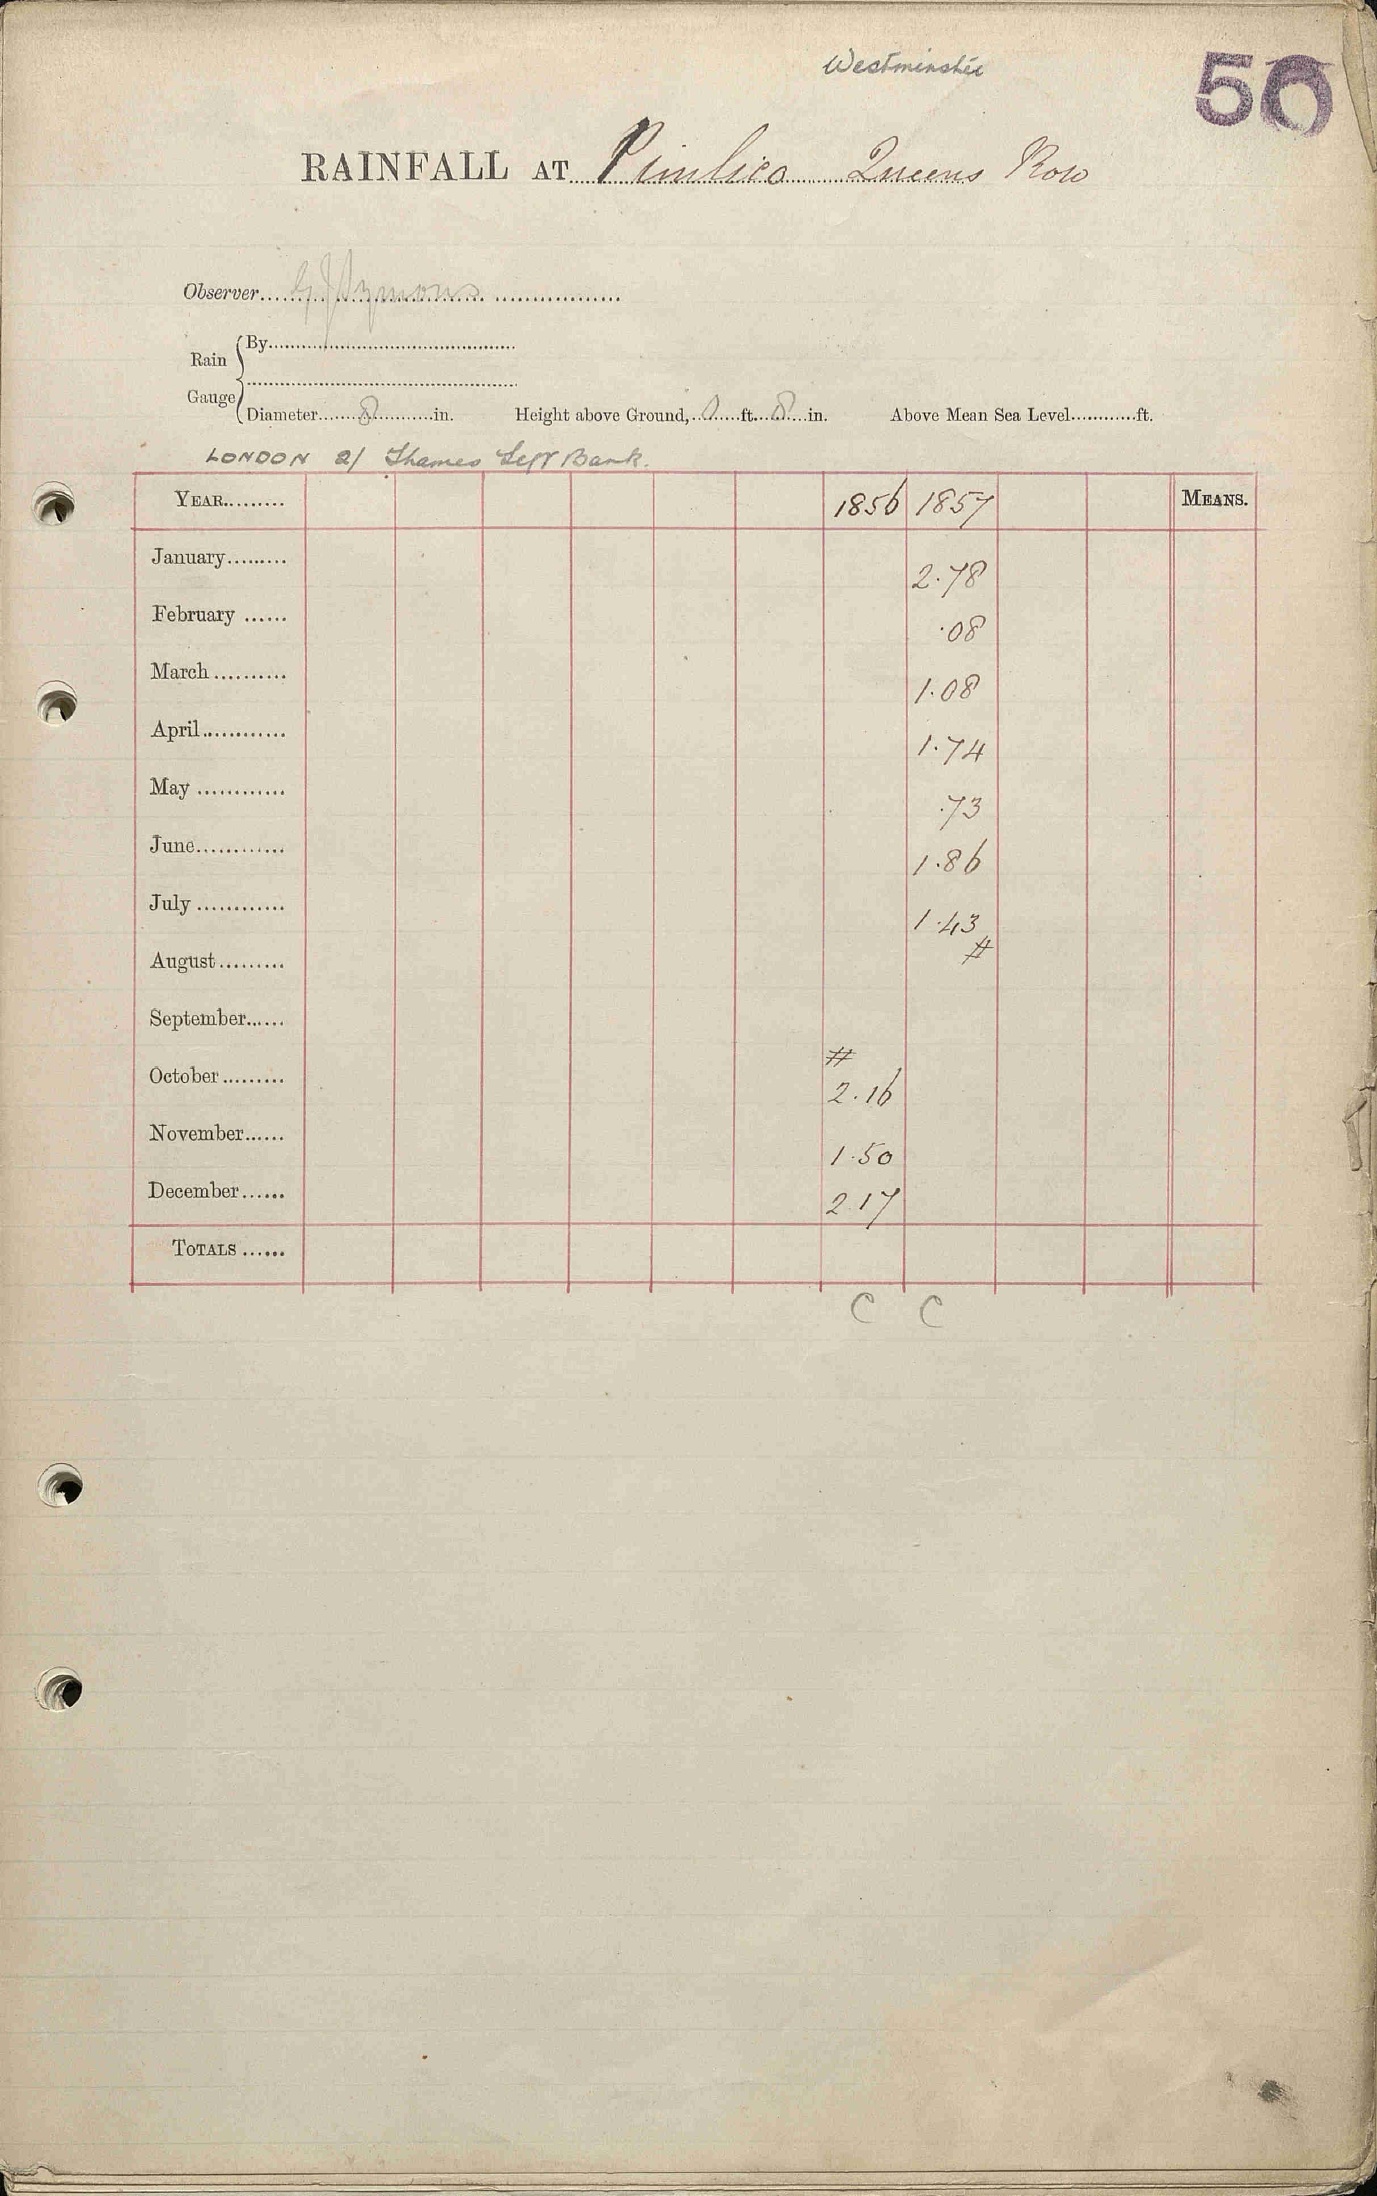 Westminster
50
RAINFALL AT Pimlico Queens Row
Observer G J Symons
Rain Gauge
By
Diameter 8 in. Height above Ground, 0 ft. 8 in. Above Mean Sea Level ft.
LONDON 2/ Thames Left Bank.
YEAR 1856 1857 MEANS.
January 2.78
February .08
March 1.08
April 1.74
May .73
June 1.86
July 1.43
#
August
September
#
October 2.16
November 1.50
December 2.17
TOTALS
C C